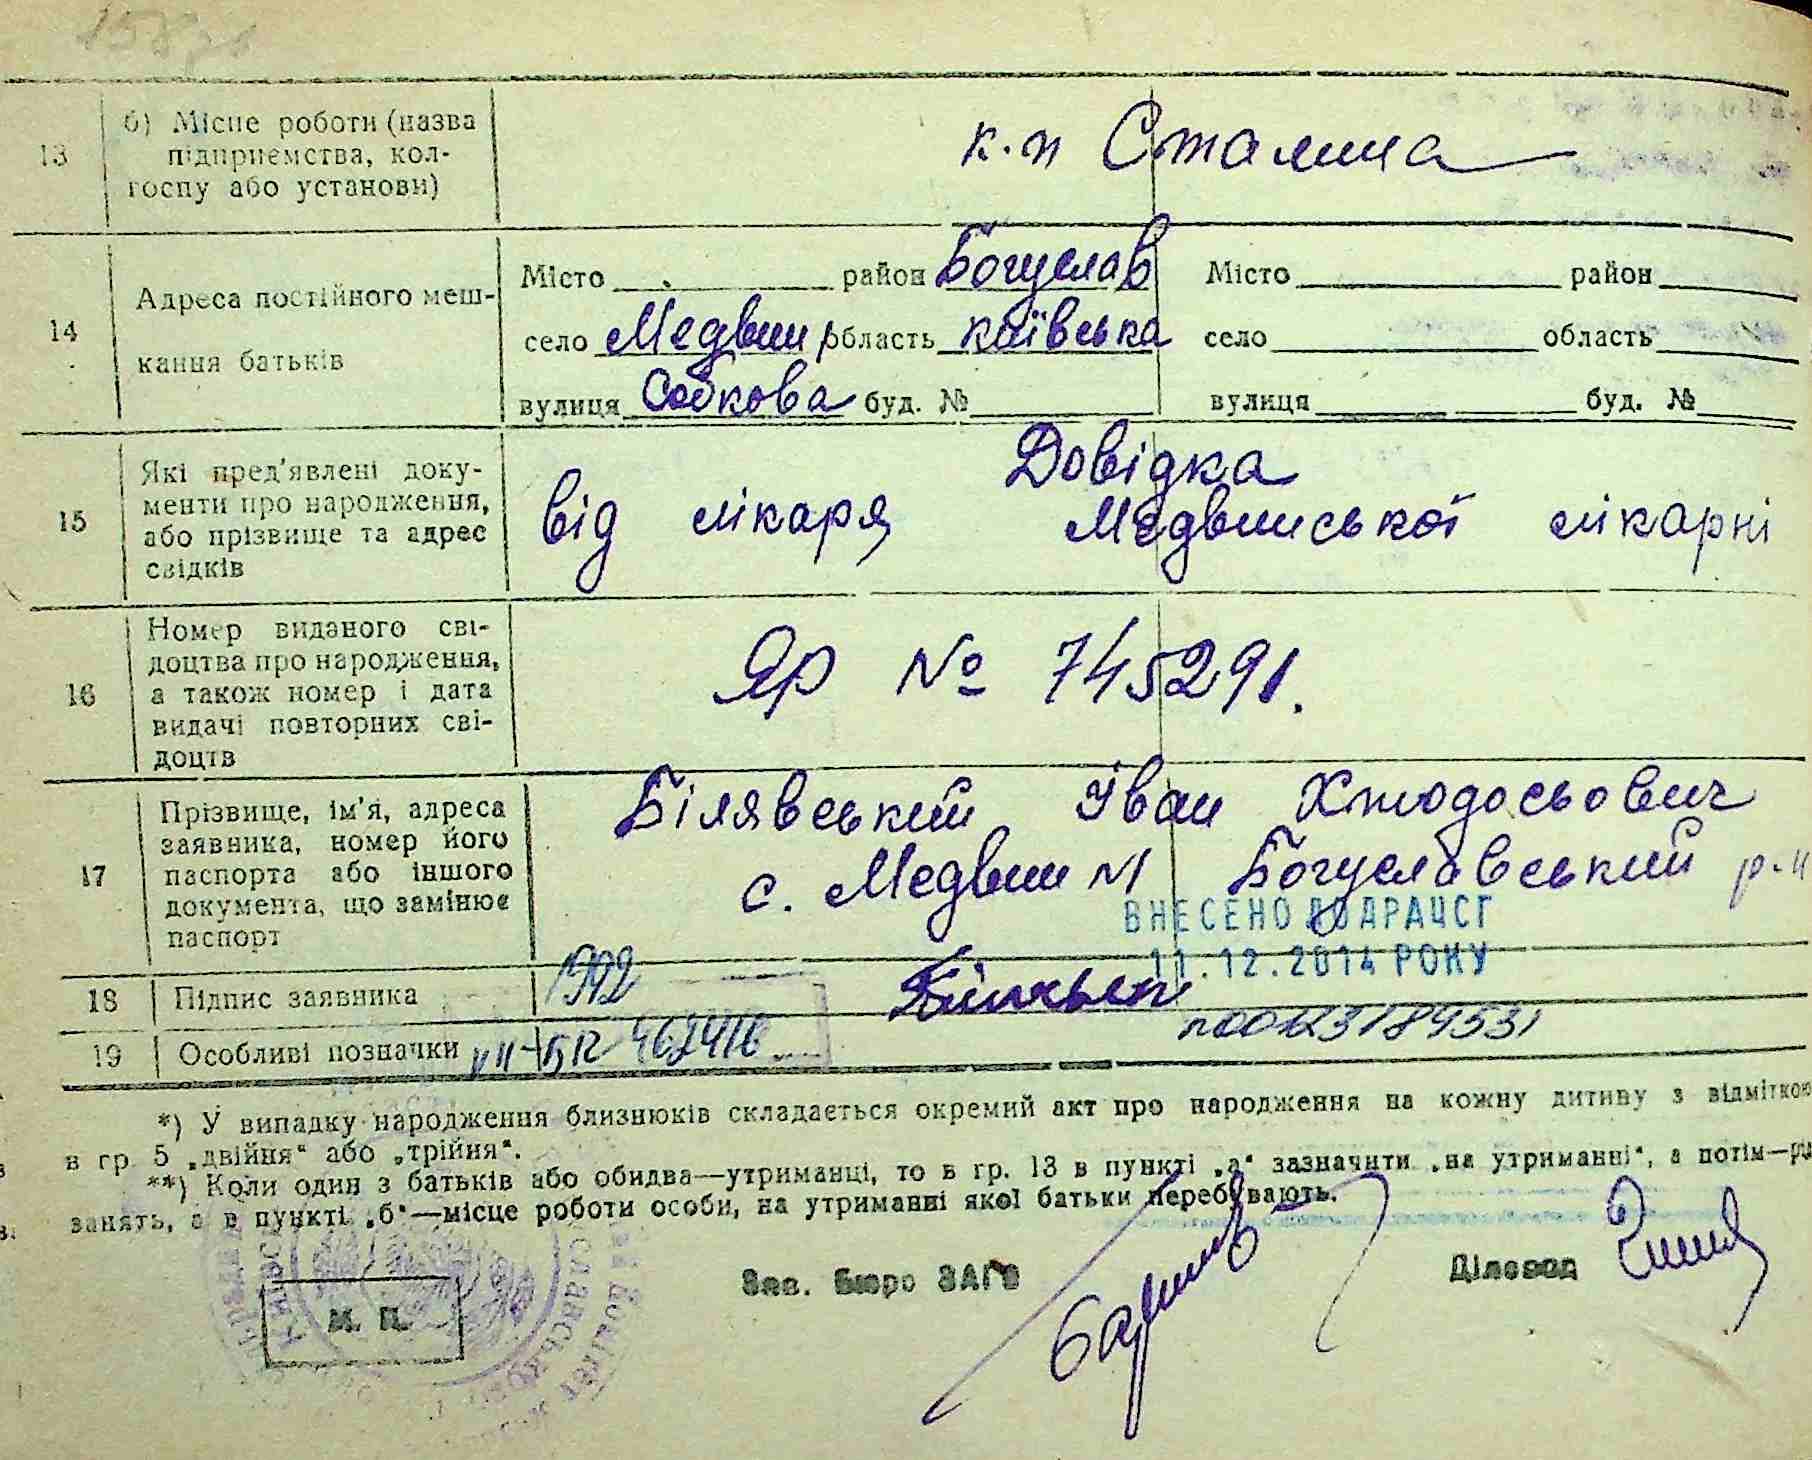 13
б) Місце роботи (назва
підприємства, кол-
госпу або установи)
к.п Сталина
14
Адреса постійного меш-
кання батьків
Місто район Богуслав
село Медвин область київська
вулиця Собкова буд. №
Місто район
село область
вулиця буд. №
15
Які пред'явлені доку-
менти про народження,
або прізвище та адрес
свідків
Довідка
від лікаря Медвинської лікарні
16
Номер виданого сві-
доцтва про народження,
а також номер і дата
видачі повторних сві-
доцтв
ЯР № 745291.
17
Прізвище, ім'я, адреса
заявника, номер його
паспорта або іншого
документа, що замінює
паспорт
Білявський Іван
с. Медвин Богуславський р-н
ВНЕСЕНО ДО ДРАЦСГ
11.12.2014 РОКУ
18
Підпис заявника
1992
19
Особливі позначки
462416
00123189531
*) У випадку народження близнюків складається окремий акт про народження на кожну дитину з відміткою
в гр. 5 „двійня“ або „трійня“.
**) Коли один з батьків або обидва—утриманці, то в гр. 13 в пункті „а“ зазначити „на утриманні“, а потім—рід
занять, а в пункті „б“—місце роботи особи, на утриманні якої батьки перебувають.
М. П.
Зав. Бюро ЗАГС
Діловод